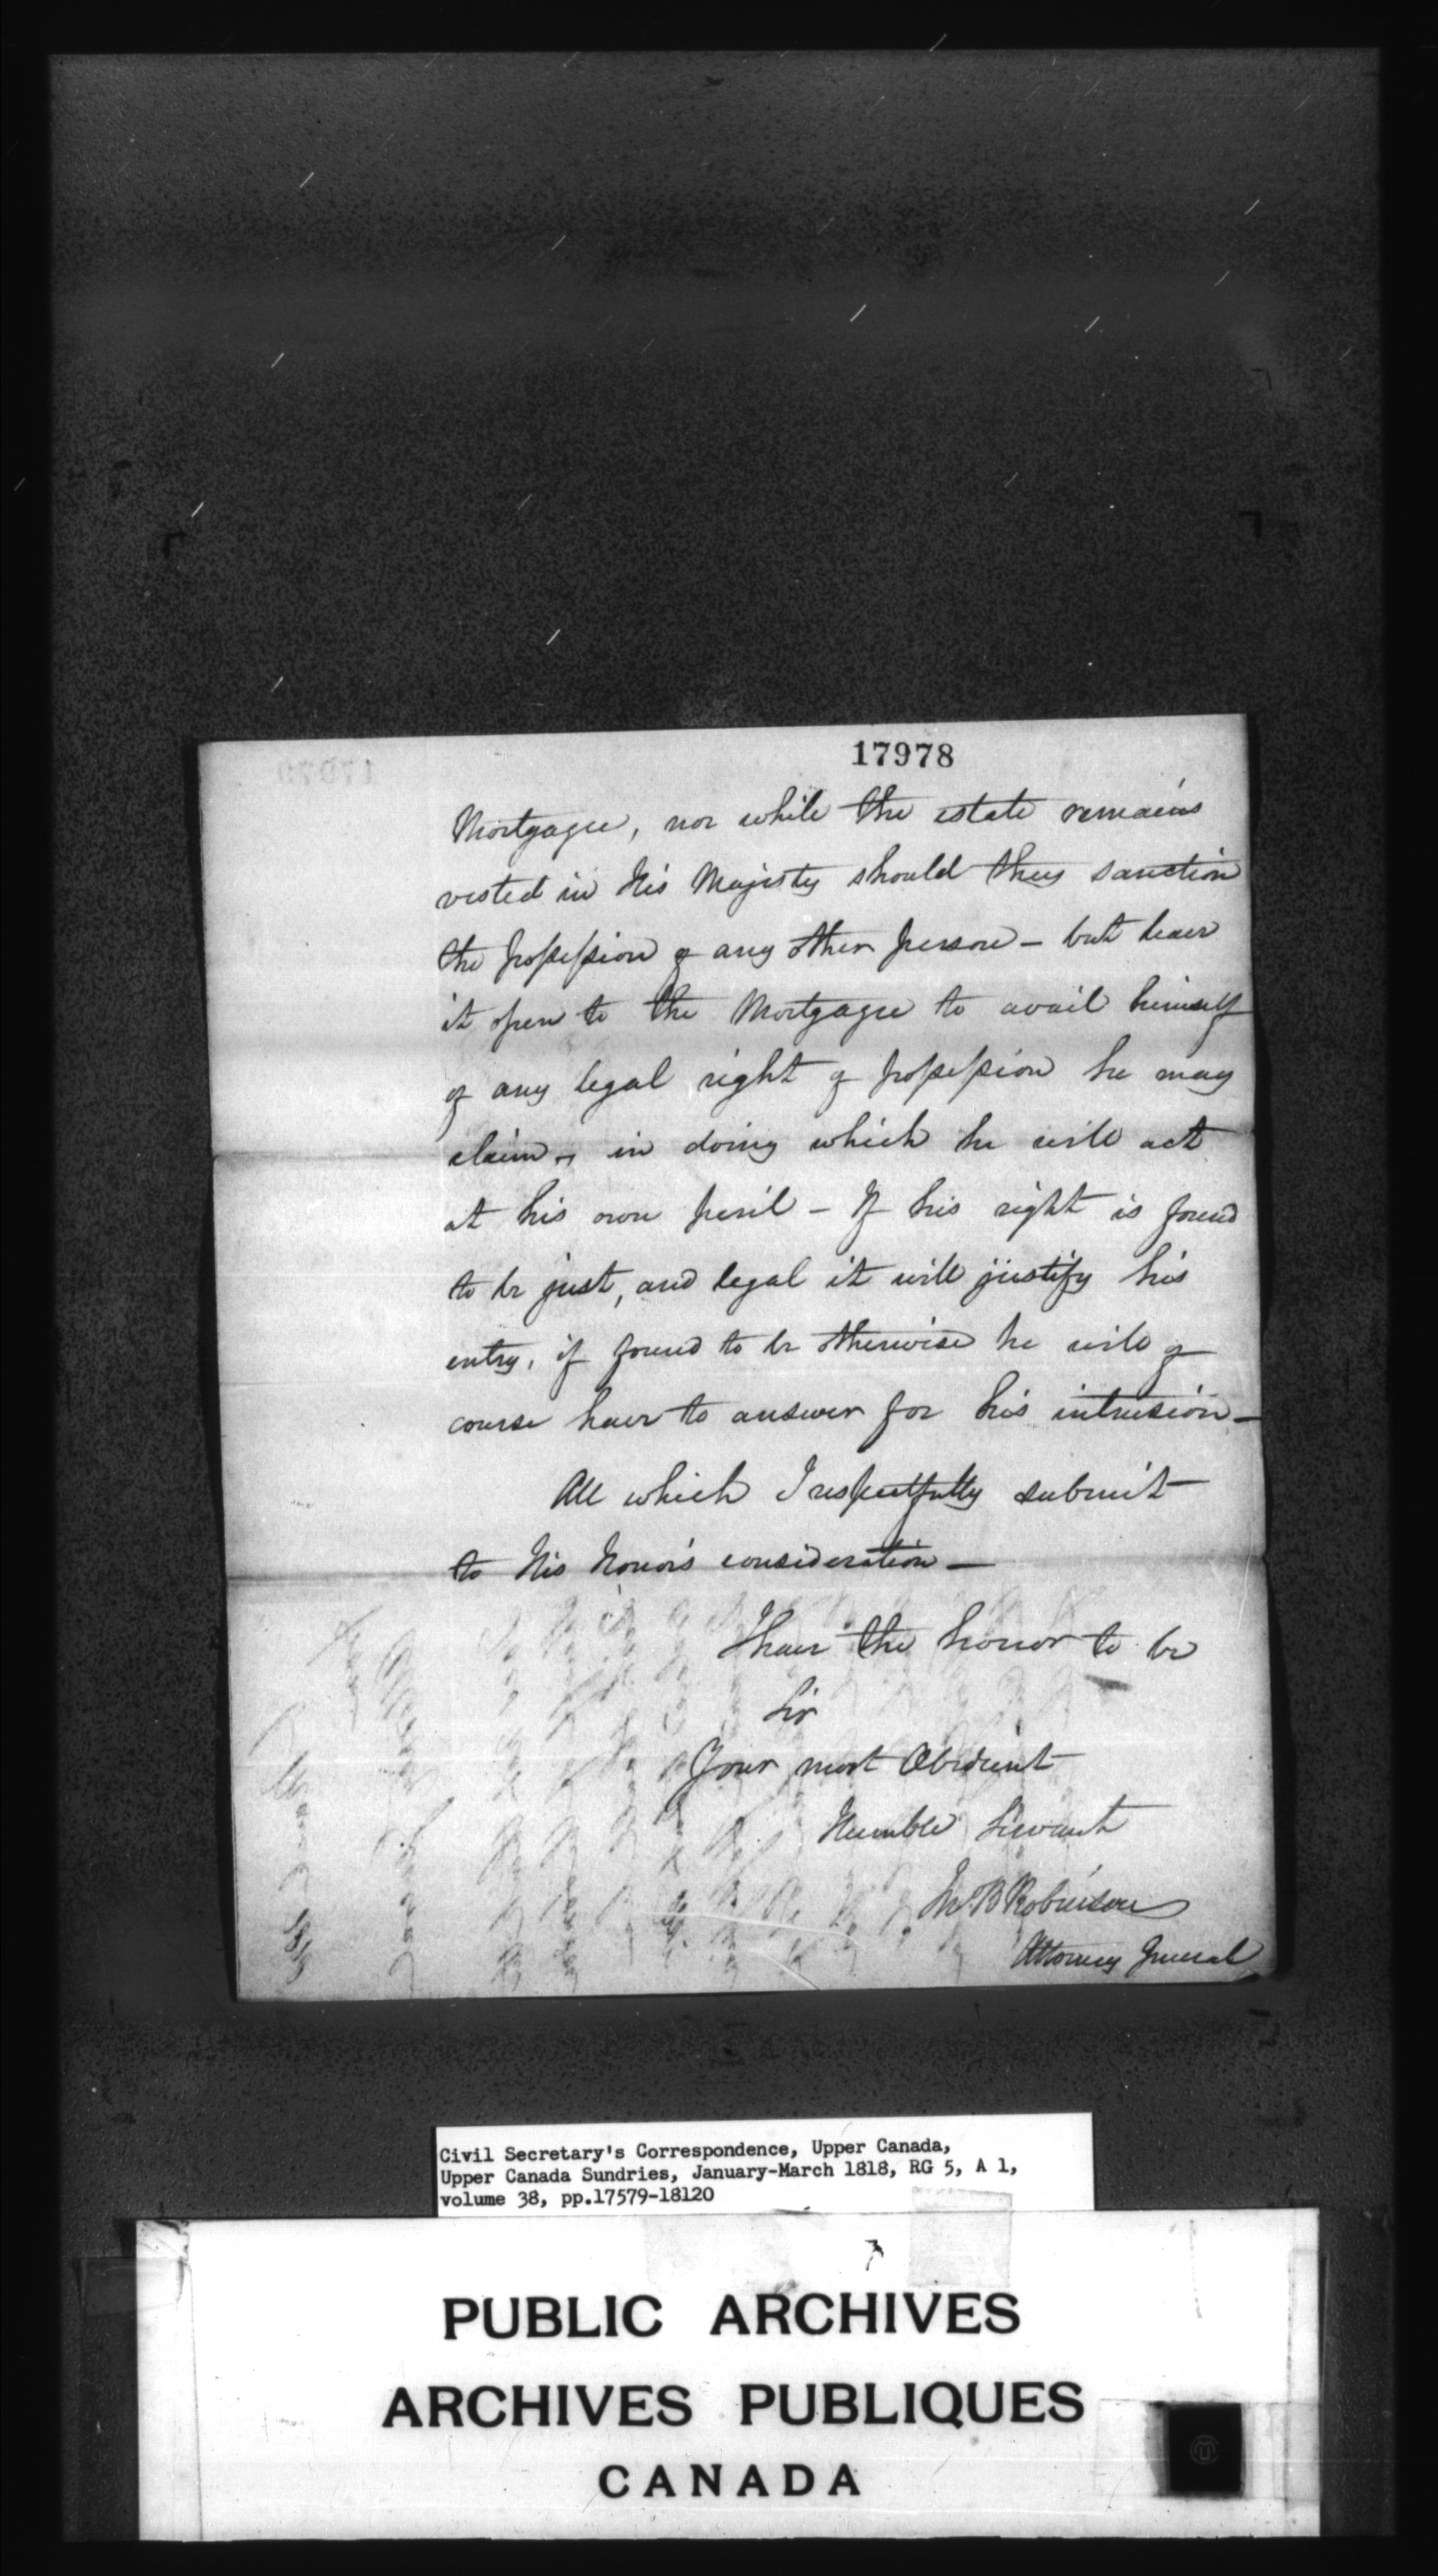 17978
Mortgagee, nor while the estate remains
vested in His Majesty should they sanction
the possession of any other person - but leave
it open to the Mortgagee to avail himself
of any legal right of possession he may
claim, in doing which he will act
at his own peril - If his right is found
to be just, and legal it will justify his
entry, if found to be otherwise he will of
course have to answer for his intrusion -
All which I respectfully submit
to His Honors consideration -
I have the honor to be
Sir
Your most Obedient
Humble Servant
Jno B Robinson
Attorney General
Civil Secretary's Correspondence, Upper Canada,
Upper Canada Sundries, January-March 1818, RG 5, A 1,
volume 38, pp.17579-18120
PUBLIC ARCHIVES
ARCHIVES PUBLIQUES
CANADA